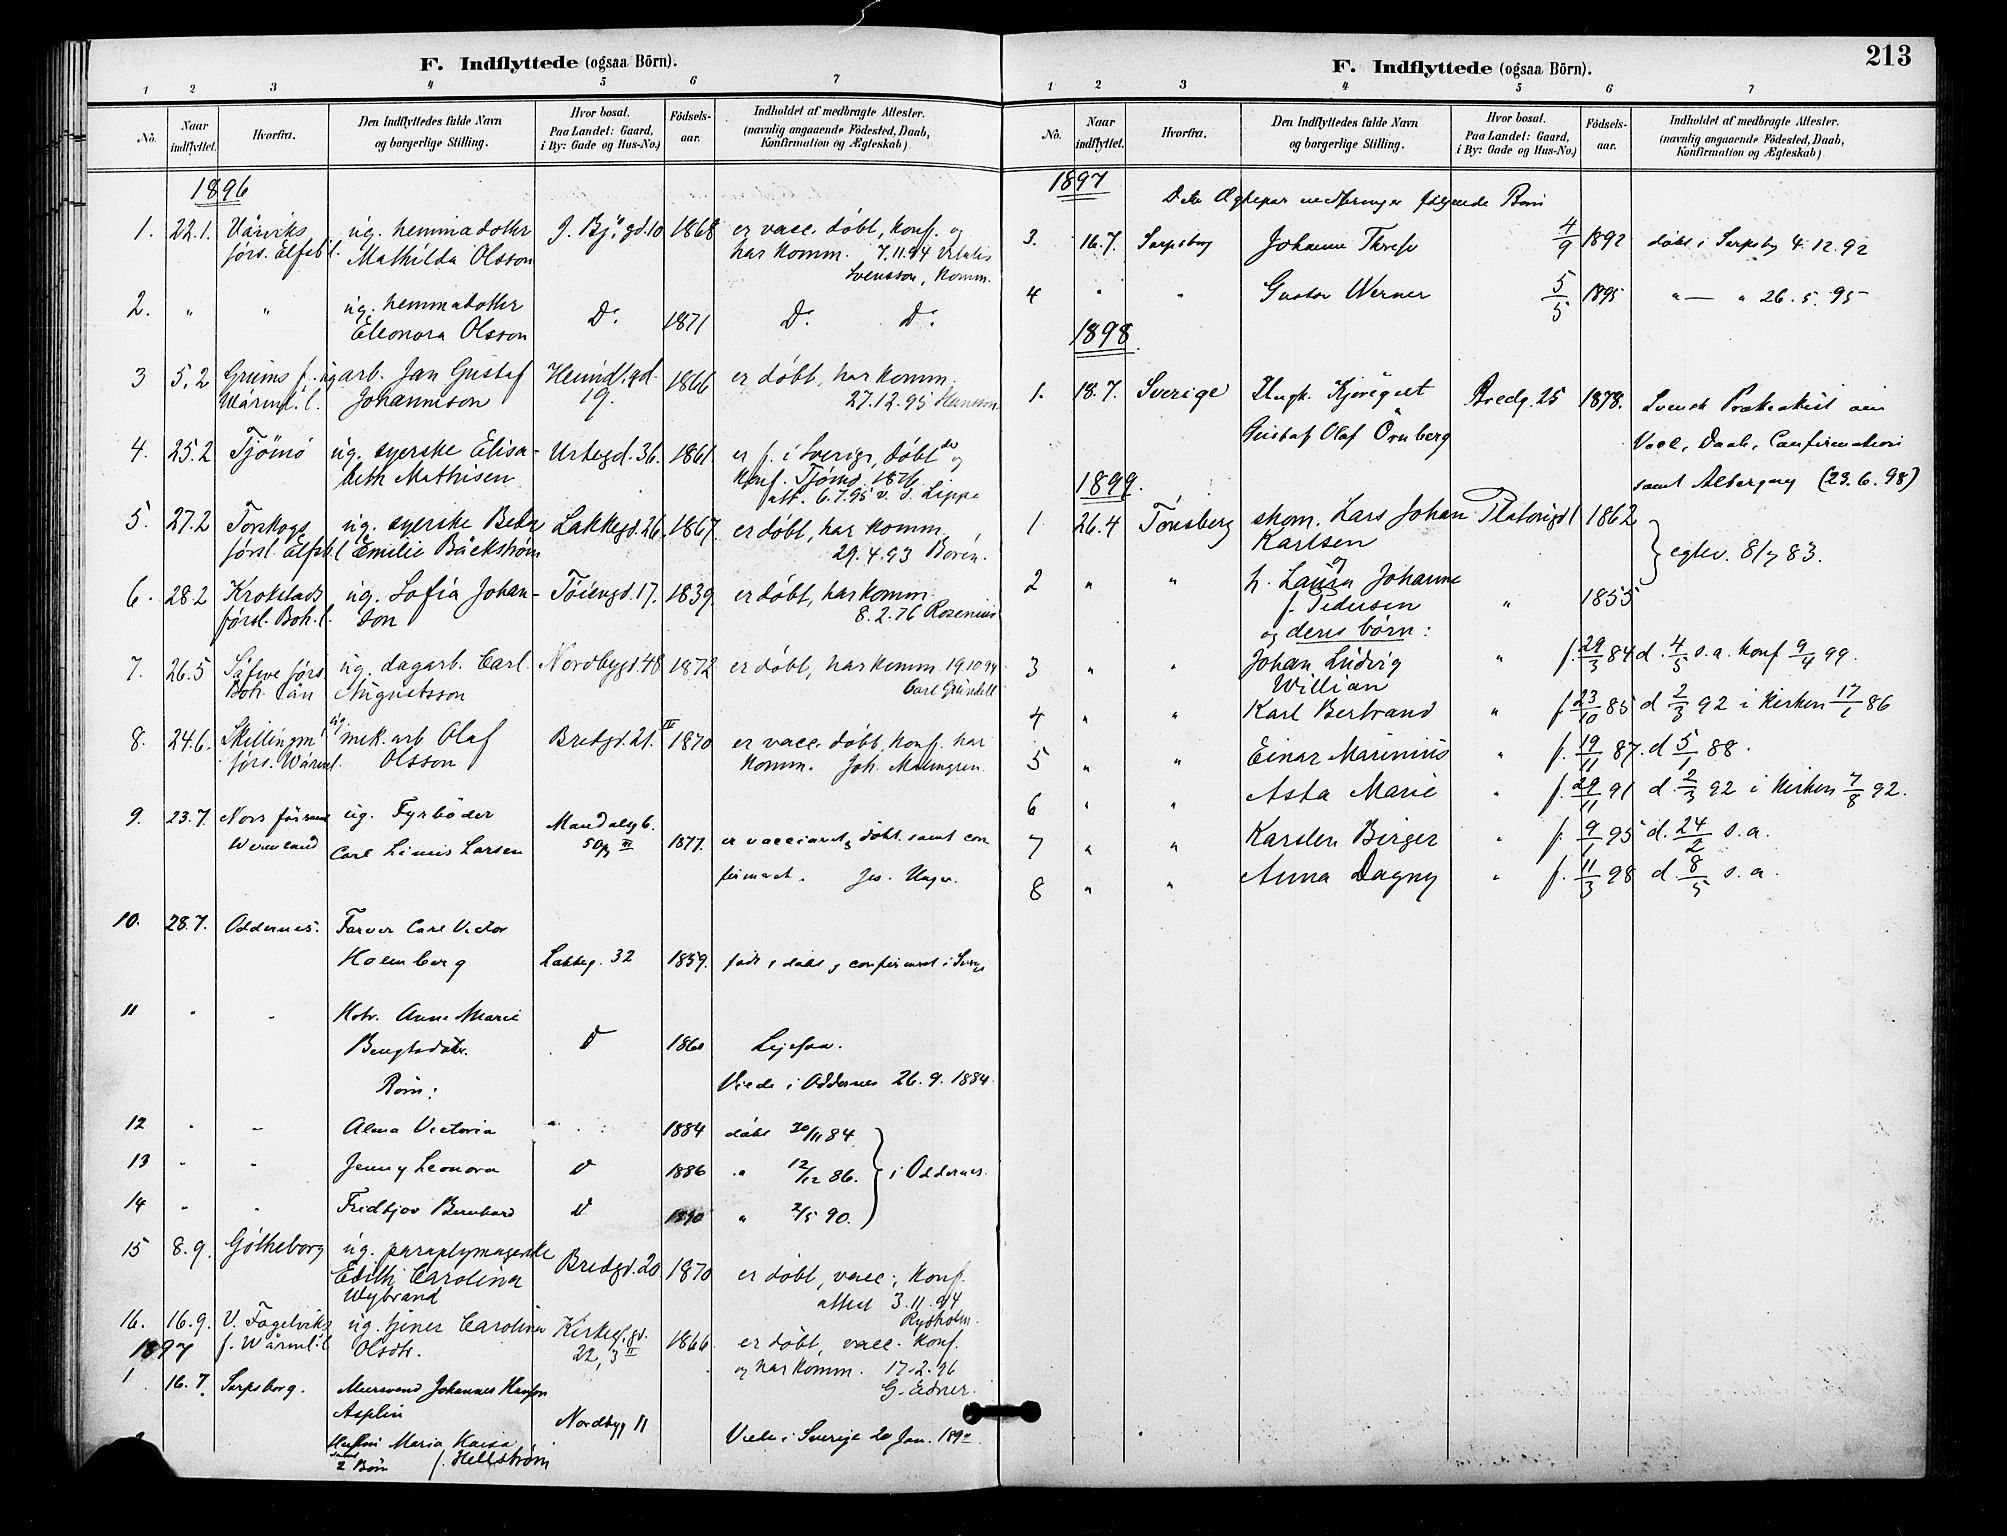 F. Indflyttede (ogsaa Börn).
1 2 3 4 5 6 7
No. Naar indflyttet. Hvorfra. Den Indflyttedes fulde Navn og borgerlige Stilling. Hvor bosat. Paa Landet: Gaard, i By: Gade og Hus-No.) Födsels-aar. Indholdet af medbragte Attester. (navnlig angaaende Födested, Daab, Konfirmation og Ægteskab)
1896
1. 22.1. ug. hemmadotter 1868 er vacc. døbt, konf. og
förs. Elfsb. l. Mathilda Olsson har komm. 7.11.94
Svensson, Komm.
2. " " ug. hemmadotter
Eleonora Olsson D. 1871 D. D.
3 5.2 Grums f. ug arb. Jan Gustaf Heimd.gd. 1866 er døbt, har komm.
Wärml. l. Johannison 19. 27.12.95
4. 25.2 Tjömö ug. syerske Elisa- Urtegd. 36. 1861 er f. i Sverige, døbt og
beth Mathisen konf. Tjömö 1876
att. 6.7.95 v. S. Lippe
5. 27.2 Torskogs ug. syerske Beda Lakkegd. 26. 1867. er døbt, har komm.
försl. Elfsb. l Emilie Bäckström 29.4.93 Borén.
6. 28.2 Krokstads ug. Sofia Johan- Töiengd. 17. 1839. er døbt, har komm
försl. Boh. l. son 8.2.76 Rosenius
7. 26.5 Säfwe förs. ug. dagarb. Carl Nordbygd. 48 1872 er døbt, har komm. 19.10.94
Boh. län Augustsson Carl Grundell
8. 24.6. Skillingm ug mek. arb. Olaf Bredgd. 21. IV 1870 er vacc. døbt, konf. har
förs. Wärml. Olsson komm. Joh. Malmgren.
9. 23.7. Nors ug. Fyrbøder Mandalsg 6.
Wermland Carl Linus Larsen III 1877. er vaccineret, døbt samt con
firmeret. Jes. Unger.
10. 28.7. Oddernes. Farver Carl Victor
Holmberg Lakkeg. 32 1859. født, døbt og confirmeret i Sverige
11 " " Kstr. Anne Marie
Bengtsdatter. D 1860 Ligesaa.
Børn: Viede i Oddernes 26.9.1884.
12 " " Alma Victoria " 1884 døbt 30/11 84.
13 " " Jenny Leonora D 1886 " 12/12 86. i Oddernes.
14 " " Fridtjov Bernhard D 1890 " 2/5 90.
15 8.9. Götheborg ug. paraplymagerske
Edith Carolina Bredgd. 20 1870 er døbt, vacc., konf.
Wybrand attest 3.11.94
Rydholm.
16. 16.9. V. Fågelviks ug. tjener Carolina Kirkeg.gd. 1866 er døbt, vacc. konf.
f. Wärml. l Olsdtr. 22, 3 II og har komm. 17.2.96
G. Edner.
1897
1 16.7. Sarpsborg. Murersvend Johannes Hanson
Asplin Nordbyg 11
Hustru Maria Kaisa Viede i Sverige 20 Jan.
samt 2 Børn f. Hellström
213
F. Indflyttede (ogsaa Börn).
1 2 3 4 5 6 7
No. Naar indflyttet. Hvorfra. Den Indflyttedes fulde Navn og borgerlige Stilling. Hvor bosat. Paa Landet: Gaard, i By: Gade og Hus-No.) Födsels-aar. Indholdet af medbragte Attester. (navnlig angaaende Födested, Daab, Konfirmation og Ægteskab)
1897
Dette Ægtepar medbringer følgende Børn
3. 16.7. Sarpsborg Johanne Therese 4/9 1892 døbt i Sarpsborg 4.12.92
4 " " Gustav Werner 5/5 1895 " — " 26.5.95
1898
1. 18.7. Sverige Ungk. Gustaf Olaf Örnberg Bredg. 25 1878. Svensk om
Vacc., Daab, Confirmation
samt Altergang (23.6.98)
1899.
1. 26.4 Tønsberg skom. Lars Johan Platousgd 1 1862
Karlsen egtev. 8/7 83.
og
2 " " h. Laura Johanne
f. Pedersen " 1855
og deres børn:
3 " " Johan Ludvig " f. 29/3 84 d. 4/5 s.a. konf 9/4 99.
Willian
4 " " Karl Bertrand " f. 23/10 85 d 2/3 92 i kirken 17/1 86
5 " " Einar Marinius " f. 19/11 87. d 5/1 88.
6 " " Asta Marie " f. 29/11 91 d. 2/3 92 i kirken 7/8 92.
7 " " Karsten Birger " f. 9/1 95 d. 24/2 s.a.
8 " " Anna Dagny " f. 11/3 98 d. 8/5 s.a.